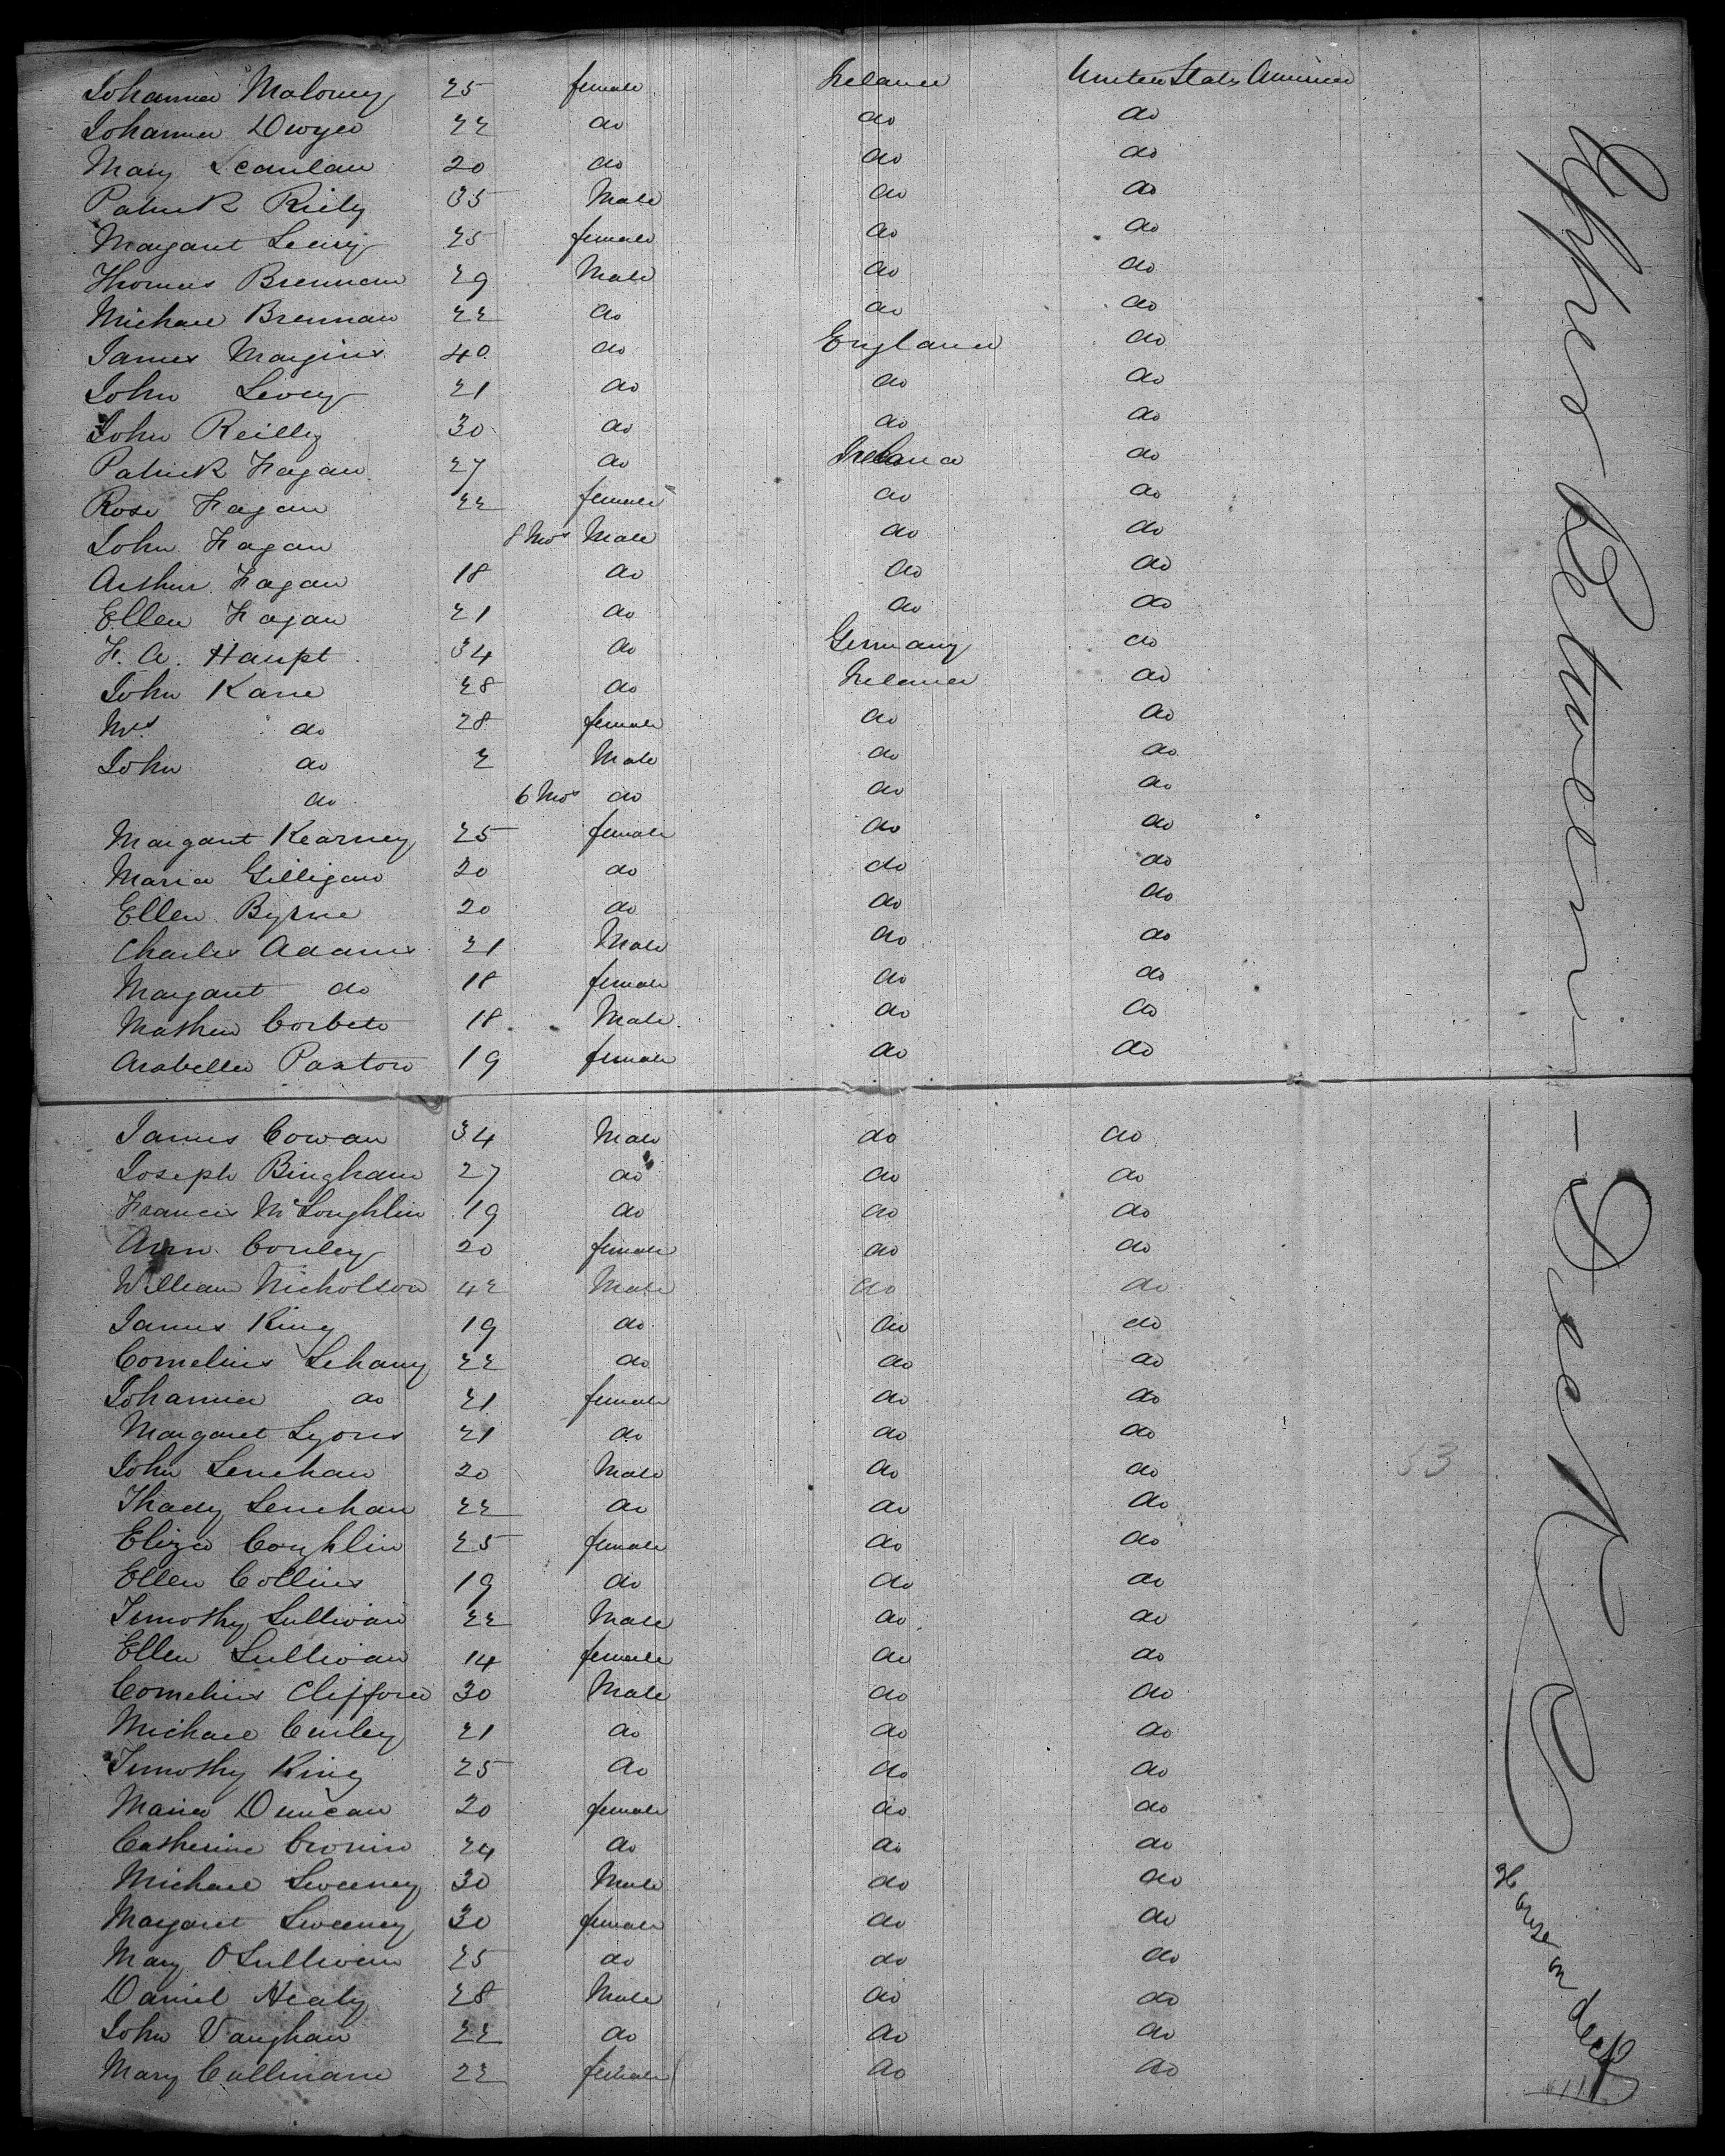 Johanna Maloney 25 female Ireland United States America
Johanna Dwyer 22 do do do
Mary Scanlan 20 do do do
Patrick Riely 35 Male do do
Margaret 25 female do do
Thomas Brennan 29 Male do do
Michael Brennan 22 do do do
James 40 do England do
John Levey 21 do do do
John Reilly 30 do do do
Patrick Fagan 27 do Ireland do
Rose Fagan 22 female do do
John Fagan 8 Mos Male do do
Arthur Fagan 18 do do do
Ellen Fagan 21 do do do
F. A. Haupt 34 do Germany do
John Kane 28 do Ireland do
Mrs do 28 female do do
John do 2 Male do do
do 6 Mos do do do
Margaret Kearney 25 female do do
Maria Gilligan 20 do do do
Ellen Byrne 20 do do do
Charles Adams 21 Male do do
Margaret do 18 female do do
Mathew Corbett 18 Male do do
Arabella Paxton 19 female do do
James Cowan 34 Male do do
Joseph Bingham 27 do do do
Francis McLoughlin 19 do do do
Ann Conley 20 female do do
William Nicholson 42 Male do do
James King 19 do do do
Cornelius Lehany 22 do do do
Johanna do 21 female do do
Margaret Lyons 21 do do do
John Lenehan 20 Male do do
Thady Lenehan 22 do do do
Eliza Coughlin 25 female do do
Ellen Collins 19 do do do
Timothy Sullivan 22 Male do do
Ellen Sullivan 14 female do do
Cornelius Clifford 30 Male do do
Michael Curley 21 do do do
Timothy King 25 do do do
Maria Duncan 20 female do do
Catherine Cronin 24 do do do
Michael Sweeney 30 Male do do
Margaret Sweeney 30 female do do
Mary O Sullivan 25 do do do
Daniel Healy 28 Male do do
John Vaughan 22 do do do
Mary Cullinane 22 female do do
Upper Between - Deck
House on deck
53